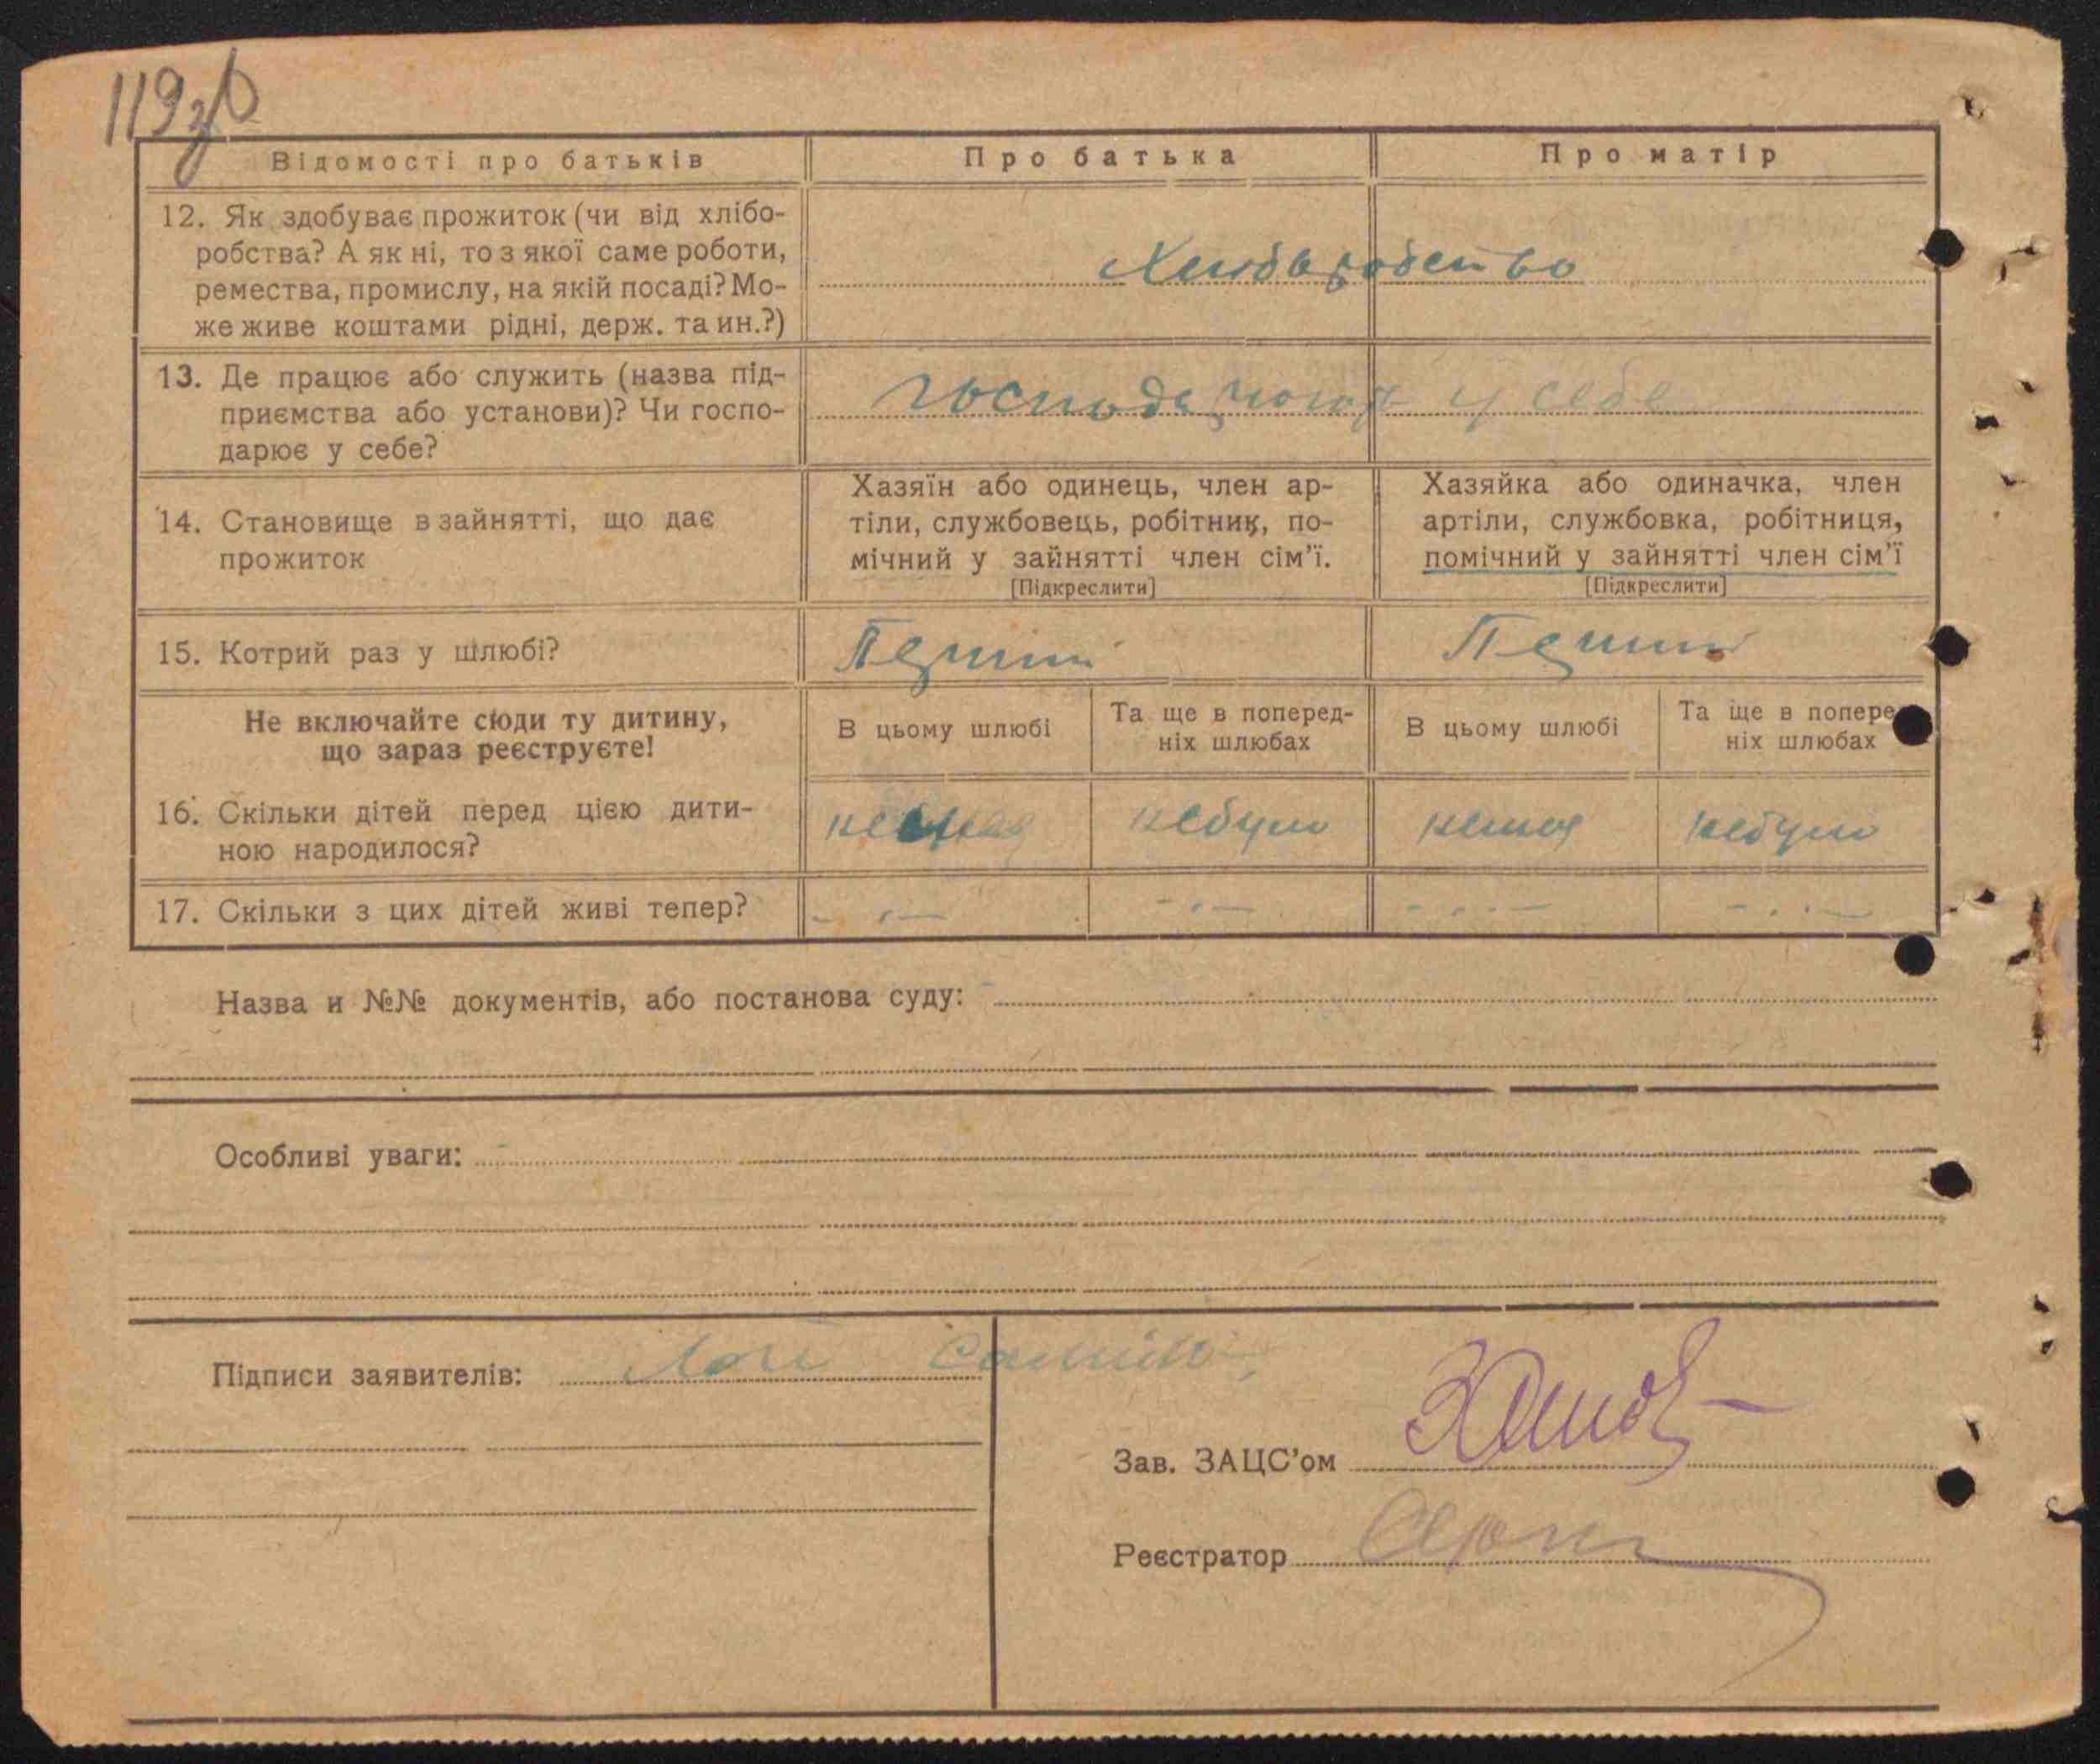 119зв
Відомості про батьків
Про батька
Про матір
12. Як здобуває прожиток (чи від хлібо-
робства? А як ні, то з якої саме роботи,
ремества, промислу, на якій посаді? Мо-
же живе коштами рідні, держ. та ин.?)
Хлибаробство
13. Де працює або служить (назва під-
приємства або установи)? Чи госпо-
дарює у себе?
господарюют у себе
14. Становище в зайнятті, що дає
прожиток
Хазяїн або одинець, член ар-
тіли, службовець, робітник, по-
мічний у зайнятті член сім'ї.
[Підкреслити]
Хазяйка або одиначка, член
артіли, службовка, робітниця,
помічний у зайнятті член сім'ї
[Підкреслити]
15. Котрий раз у шлюбі?
Перший
Перший
Не включайте сюди ту дитину,
що зараз реєструєте!
В цьому шлюбі
Та ще в поперед-
ніх шлюбах
В цьому шлюбі
Та ще в попере
ніх шлюбах
16. Скільки дітей перед цією дити-
ною народилося?
небуло
немая
небуло
17. Скільки з цих дітей живі тепер?
Назва и №№ документів, або постанова суду:
Особливі уваги:
Підписи заявителів:
Зав. ЗАЦС'ом
Реєстратор